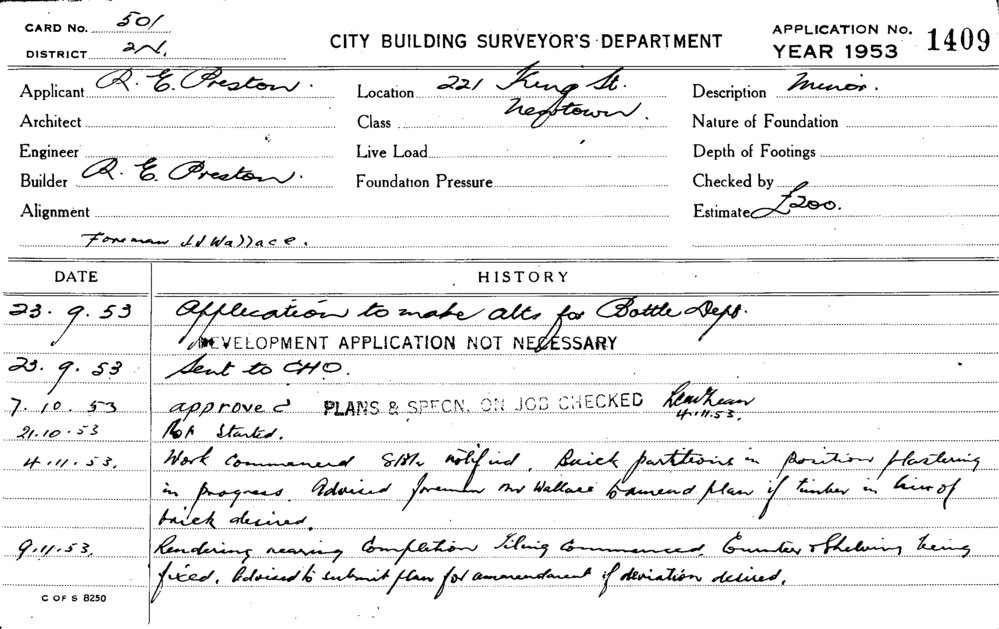 CARD No. 501
DISTRICT 2N.
CITY BUILDING SURVEYOR'S DEPARTMENT
APPLICATION No. 1409
YEAR 1953
Applicant R. E. Preston.
Location 221 King St.
Description Minor.
Architect
Class Newtown.
Nature of Foundation
Engineer
Live Load
Depth of Footings
Builder R. E. Preston.
Foundation Pressure
Checked by
Alignment
Estimate £200.
Foreman Wallace.
DATE HISTORY
23. 9. 53 Application to make alts for Bottle Dept.
DEVELOPMENT APPLICATION NOT NECESSARY
23. 9. 53 Sent to CHO.
7. 10. 53 approved PLANS & SPECN. ON JOB CHECKED
4.11.53.
21.10.53 Not Started.
4.11.53. Work Commenced notified. Brick partitions in position plastering
in progress. Advised foreman Mr Wallace to amend plan if timber in lieu of
brick desired.
9.11.53. Rendering nearing Completion Tiling Commenced. Counter & Shelving being
fixed. Advised to submit plan for ammendment if deviation desired.
C OF S 8250